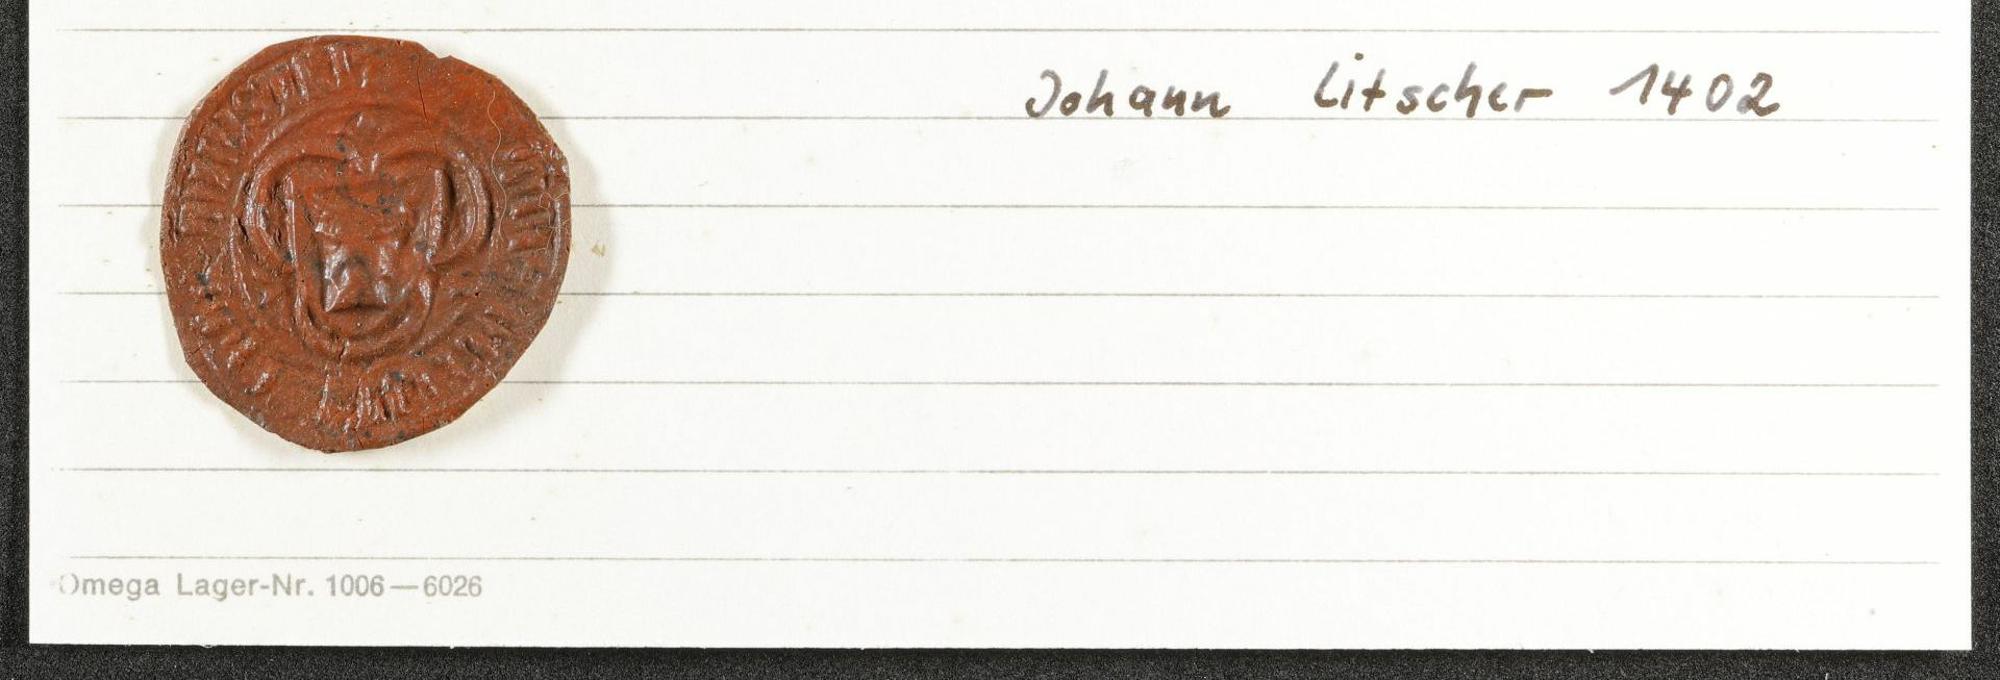 Johann Litscher 1402
Omega Lager-Nr. 1006—6026